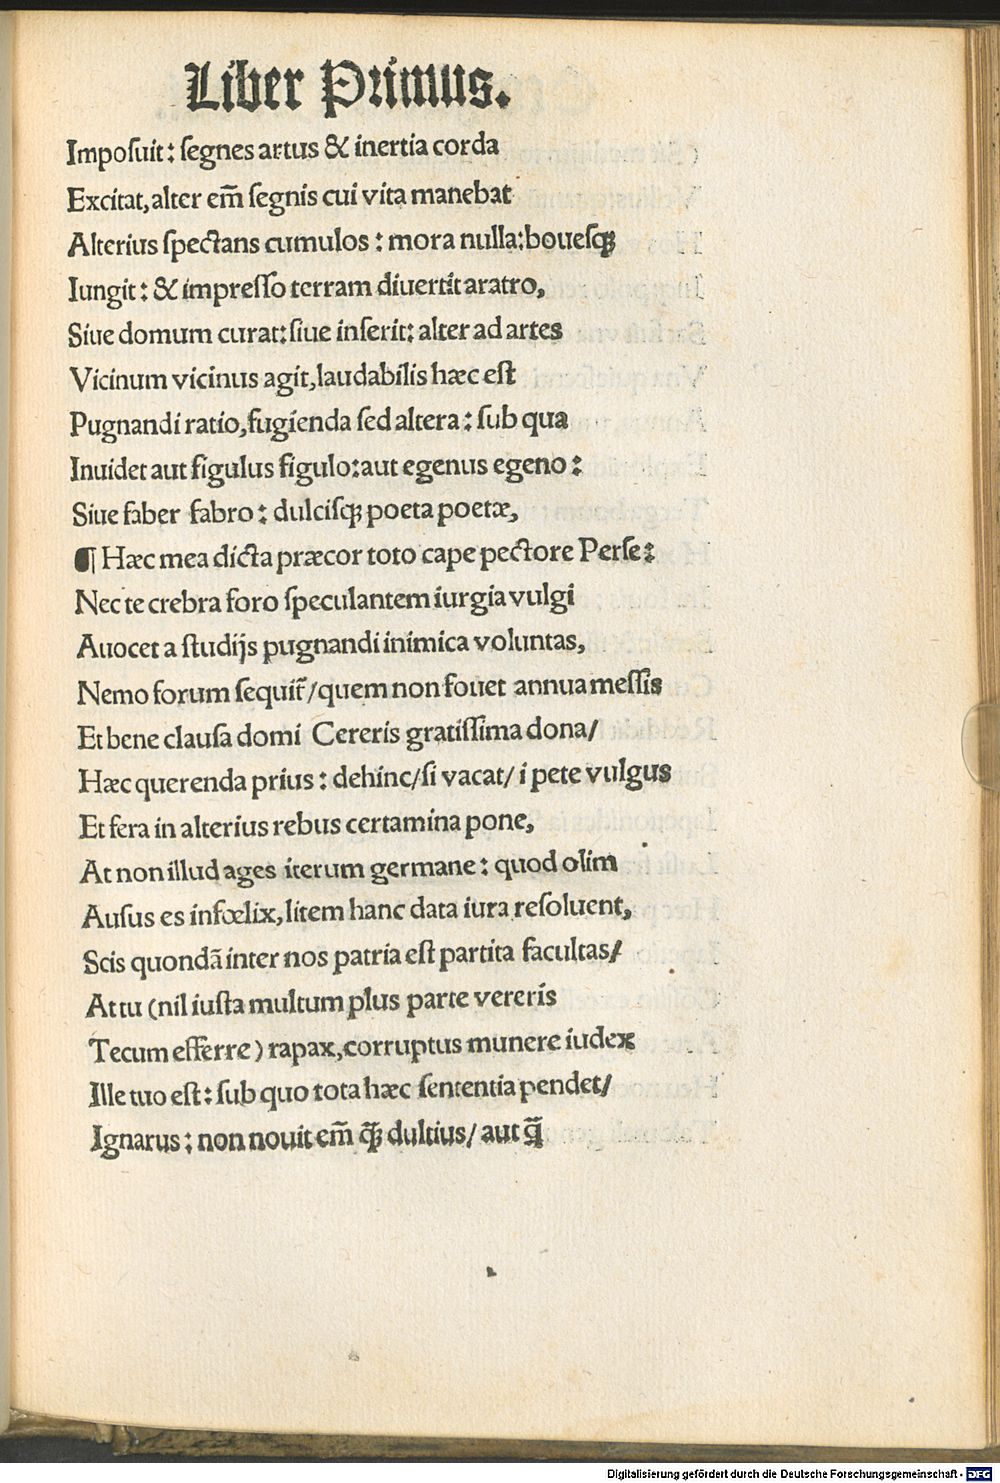 Liber Primus.
Impoſuit: ſegnes artus & inertia corda
Excitat, alter em̃ ſegnis cui vita manebat
Alterius ſpectans cumulos: mora nulla: boueſqꝫ
Iungit: & impreſſo terram diuertit aratro,
Siue domum curat: ſiue inſerit: alter ad artes
Vicinum vicinus agit, laudabilis hæc eſt
Pugnandi ratio, fugienda ſed altera: ſub qua
Inuidet aut figulus figulo: aut egenus egeno:
Siue faber fabro: dulciſqꝫ poeta poetæ,
¶ Hæc mea dicta præcor toto cape pectore Perſe:
Nec te crebra foro ſpeculantem iurgia vulgi
Auocet a ſtudijs pugnandi inimica voluntas,
Nemo forum ſequit̃/ quem non fouet annua meſſis
Et bene clauſa domi Cereris gratiſſima dona/
Hæc querenda prius: dehinc/ ſi vacat/ i pete vulgus
Et fera in alterius rebus certamina pone,
At non illud ages iterum germane: quod olim
Auſus es infœlix, litem hanc data iura reſoluent,
Scis quondã inter nos patria eſt partita facultas/
At tu (nil iuſta multum plus parte vereris
Tecum efferre) rapax, corruptus munere iudex
Ille tuo eſt: ſub quo tota hæc ſententia pendet/
Ignarus: non nouit em̃ qꝫ̃ dultius/ aut q̃
Digitalisierung gefördert durch die Deutsche Forschungsgemeinschaft - DFG